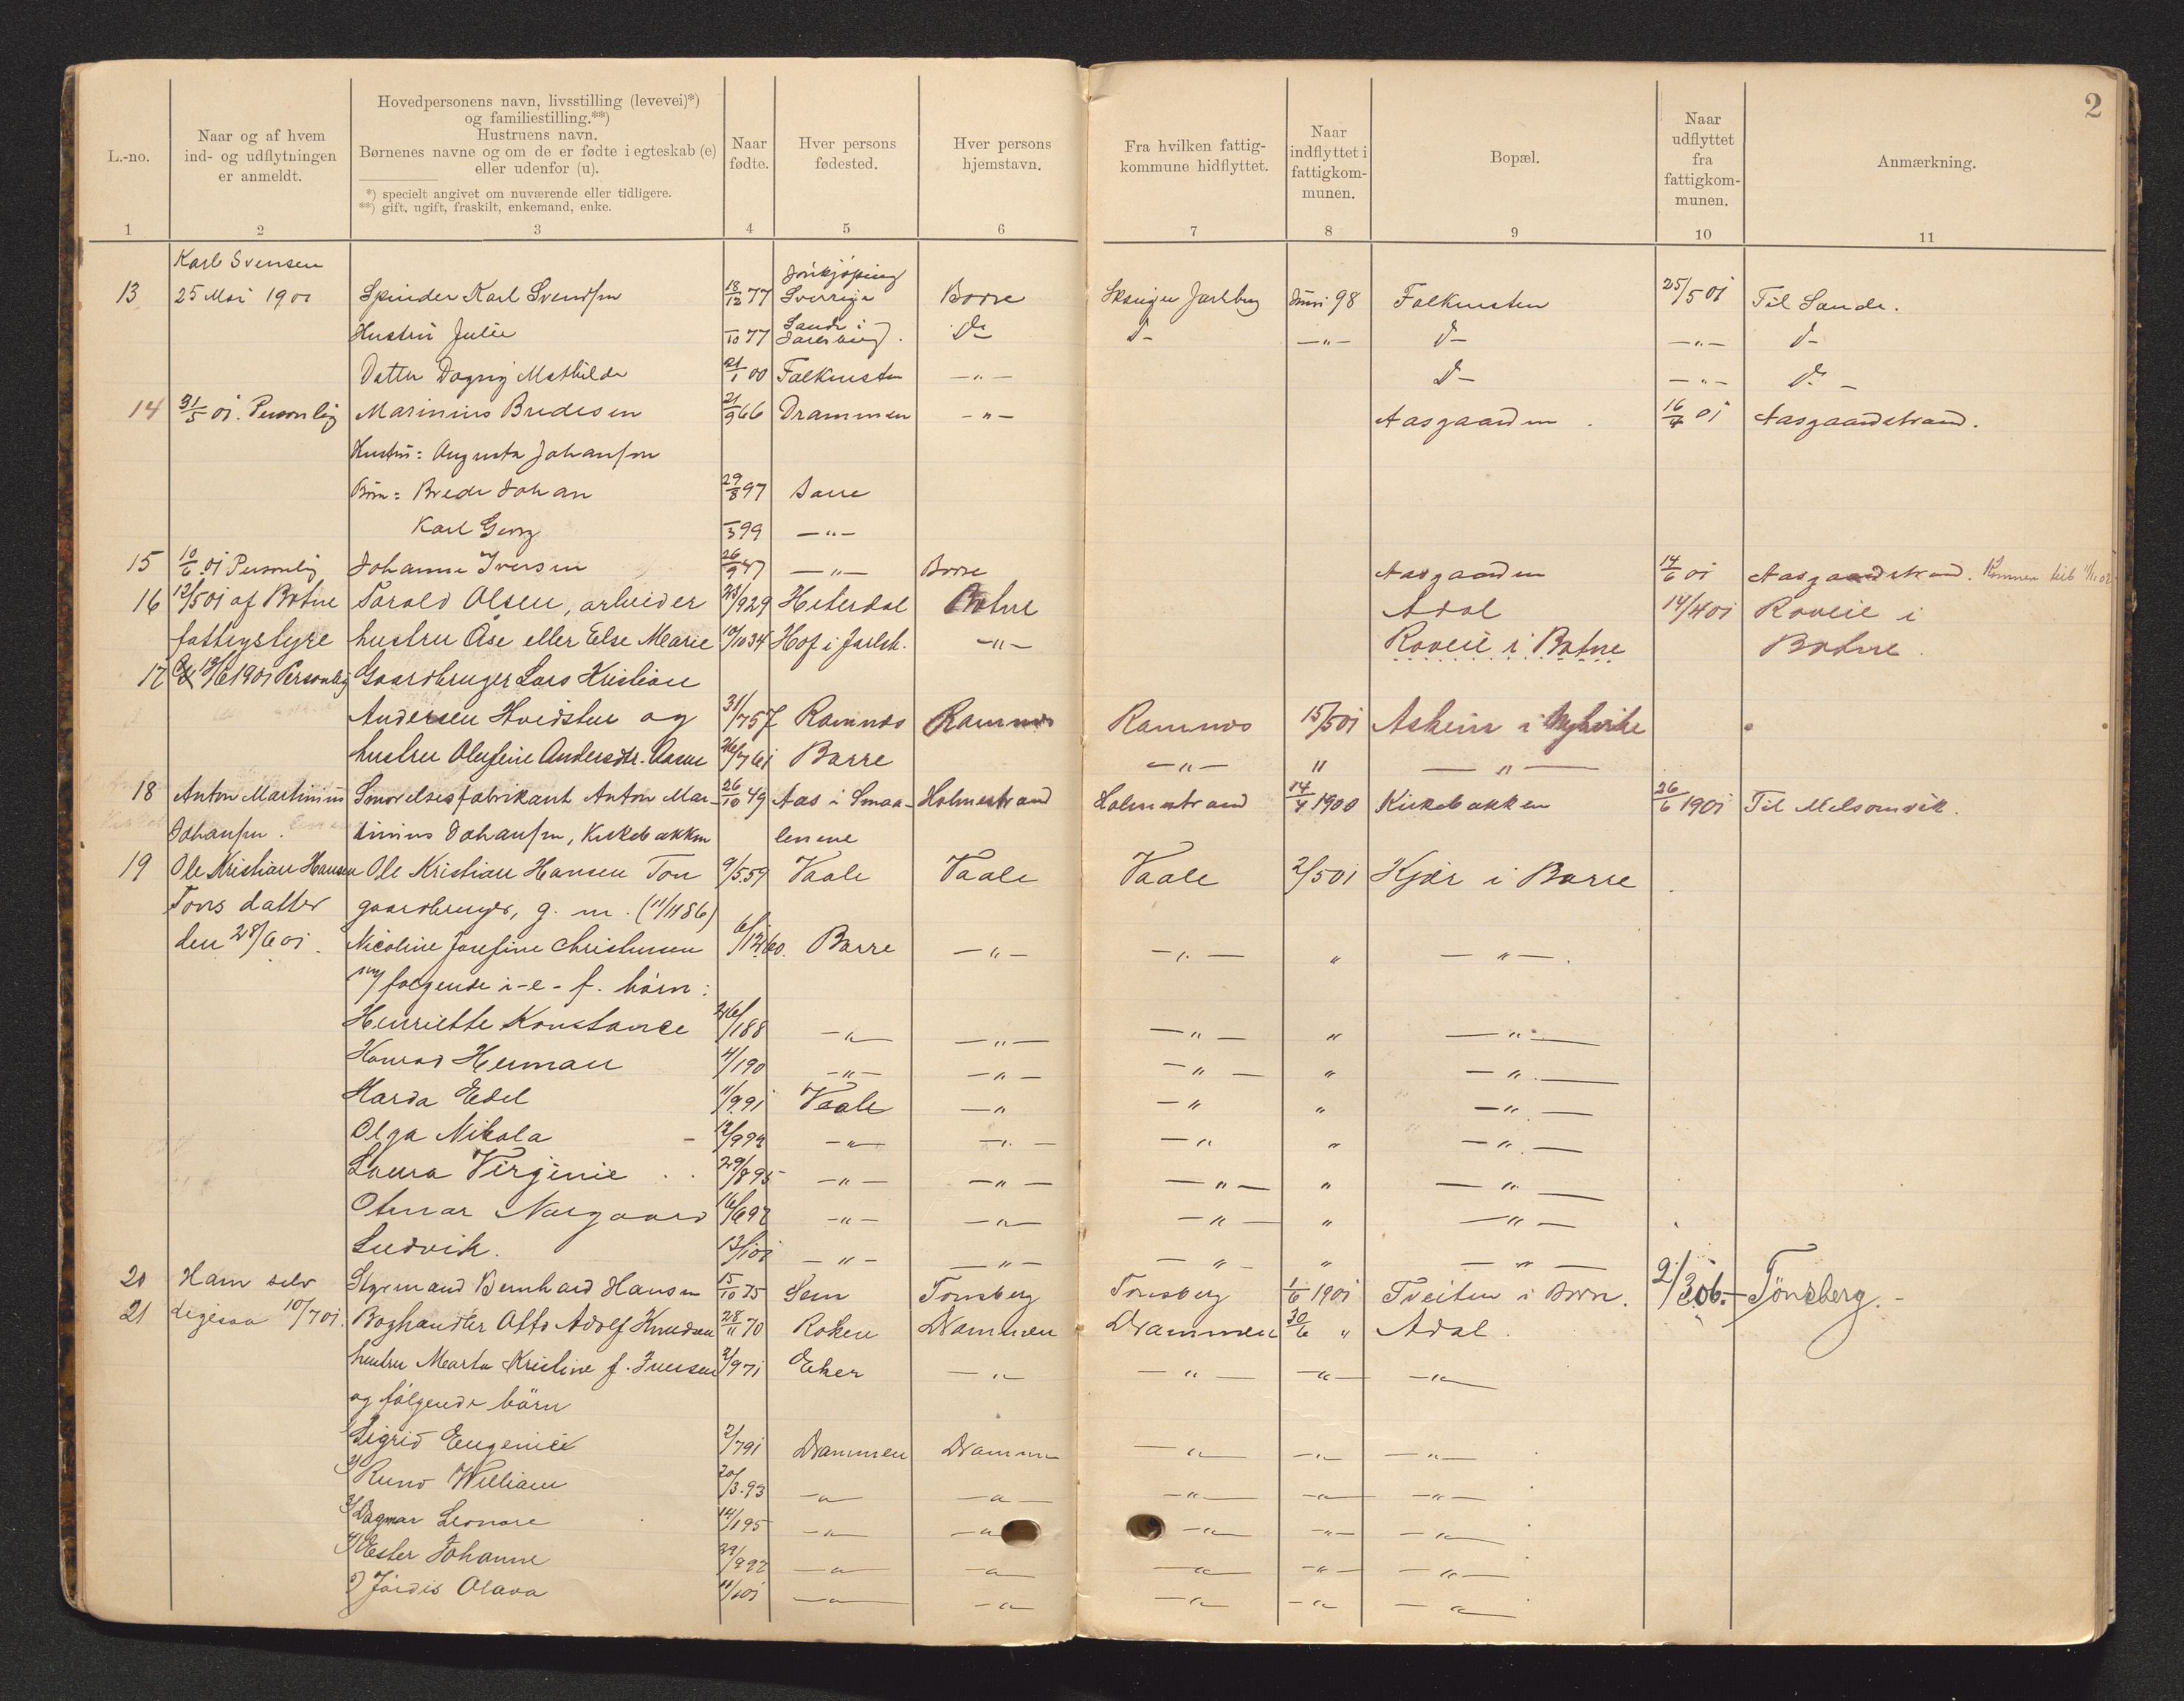 2
L.-no.
Naar og af hvem ind- og udflytningen er anmeldt.
Hovedpersonens navn, livsstilling (levevei)*) og familiestilling.**)
Hustruens navn.
Børnenes navne og om de er fødte i egteskab (e) eller udenfor (u).
*) specielt angivet om nuværende eller tidligere.
**) gift, ugift, fraskilt, enkemand, enke.
Naar fødte.
Hver persons fødested.
Hver persons hjemstavn.
Fra hvilken fattigkommune hidflyttet.
Naar indflyttet i fattigkommunen.
Bopæl.
Naar udflyttet fra fattigkommunen.
Anmærkning.
1 2 3 4 5 6 7 8 9 10 11
Karl Svensen Jönkjöping
13 25 Mai 1901 Spinder Karl Svendsen 18/12 77 Sverrige Borre Skauger Jarlsberg Juni 98 Falkensten 25/5 01 Til Sande.
Hustru Julie /10 77 Sande i Jarlsberg. Do D- -"- D- -"- D-
Datter Dagny Mathilde 21/1 00 Falkensten -"- D- -"- Do -
14 31/5 01. Personlig Marinius Bredesen 21/9 66 Drammen -"- Aasgaarden. 16/4 01 Aasgaardstrand.
Hustru: Augusta Johansen
Börn: Brede Johan 29/8 97 Borre
Karl Georg /3 99 -"-
15 10/6 01 Personlig Johanne Iversen 26/9 47 -"- Borre Aasgaarden 14/6 01 Aasgaardstrand. Kommen
16 12/5 01 af Botne Tarald Olsen, arbeider 23/9 29 Hiterdal Botne Adal 14/4 01 Roveie i
fattigstyre hustru Åse eller Else Marie 10/10 34 Hof i Jarlsb. -"- Roveie i Botne Botne.
17 19/6 1901 Personlig Gaardbruger Lars Kristian
Andersen Hvidstun og 31/7 57 Ramnæs Ramnæs Ramnæs 15/5 01 Askeim i Nykirke
hustru Olufine Andersdtr. Aasne 26/7 61 Barre -"- " -"-
18 Anton Martinius Smørelsesfabrikant Anton Mar- 26/10 49 Aas i Smaa- Holmestrand Holmestrand 14/4 1900 Kirkebakken 26/6 1901 Til Melsomvik.
Johansen. tinius Johansen, Kirkebakken lenene
19 Ole Kristian Hansen Ole Kristian Hansen Ton 9/5 59 Vaale Vaale Vaale 2/5 01 Kjær i Barre
Tons datter gaardbruger, g. m. (11/11 86)
den 28/6 01. Nicoline Josefine Christensen 6/12 60. Barre -"- -"- " -"-.
og følgende i-e-f. børn:
Henriette Konstance 26/1 88 -"- -"- -"- " -"-
Konrad Herman 4/1 90 -"- -"- -"- " -"-
Harda Edel 11/9 91 Vaale -"- -"- " -"-
Olga Nikola - 12/9 92 -"- -"- -"- " -"-
Laura Virginie 29/8 95 -"- -"- -"- " -"-
Otmar Norgaard 16/6 97 -"- -"- -"- " -"-
Ludvik. 13/1 01 -"- -"- -"- " -"-
20 Ham selv Styrmand Bernhard Hansen 15/10 75 Sem Tønsberg Tønsberg 1/6 1901 Tveiten i Borre. 2/3 06.- Tönsberg.-
21 Ligesaa 10/7 01. Boghandler Otto Adolf Knudsen 28/11 70 Röken Drammen Drammen 30/6 " Adal.
hustru Marta Kristine f. Iversen 2/9 71 Eker -"- -"- -"- -"-
og fölgende børn
1) Sigrid Eugenie 2/7 91 Drammen Drammen -"- -"- -"-
2) Runo William 20/3.93 -"- -"- -"- -"- -"-
3) Dagmar Leonore 14/1 95 -"- -"- -"- -"- -"-
4) Ester Johanne 29/9 97 -"- -"- -"- -"- -"-
5) Jørdis Olava 11/1 01 -"- -"- -"- -"- -"-